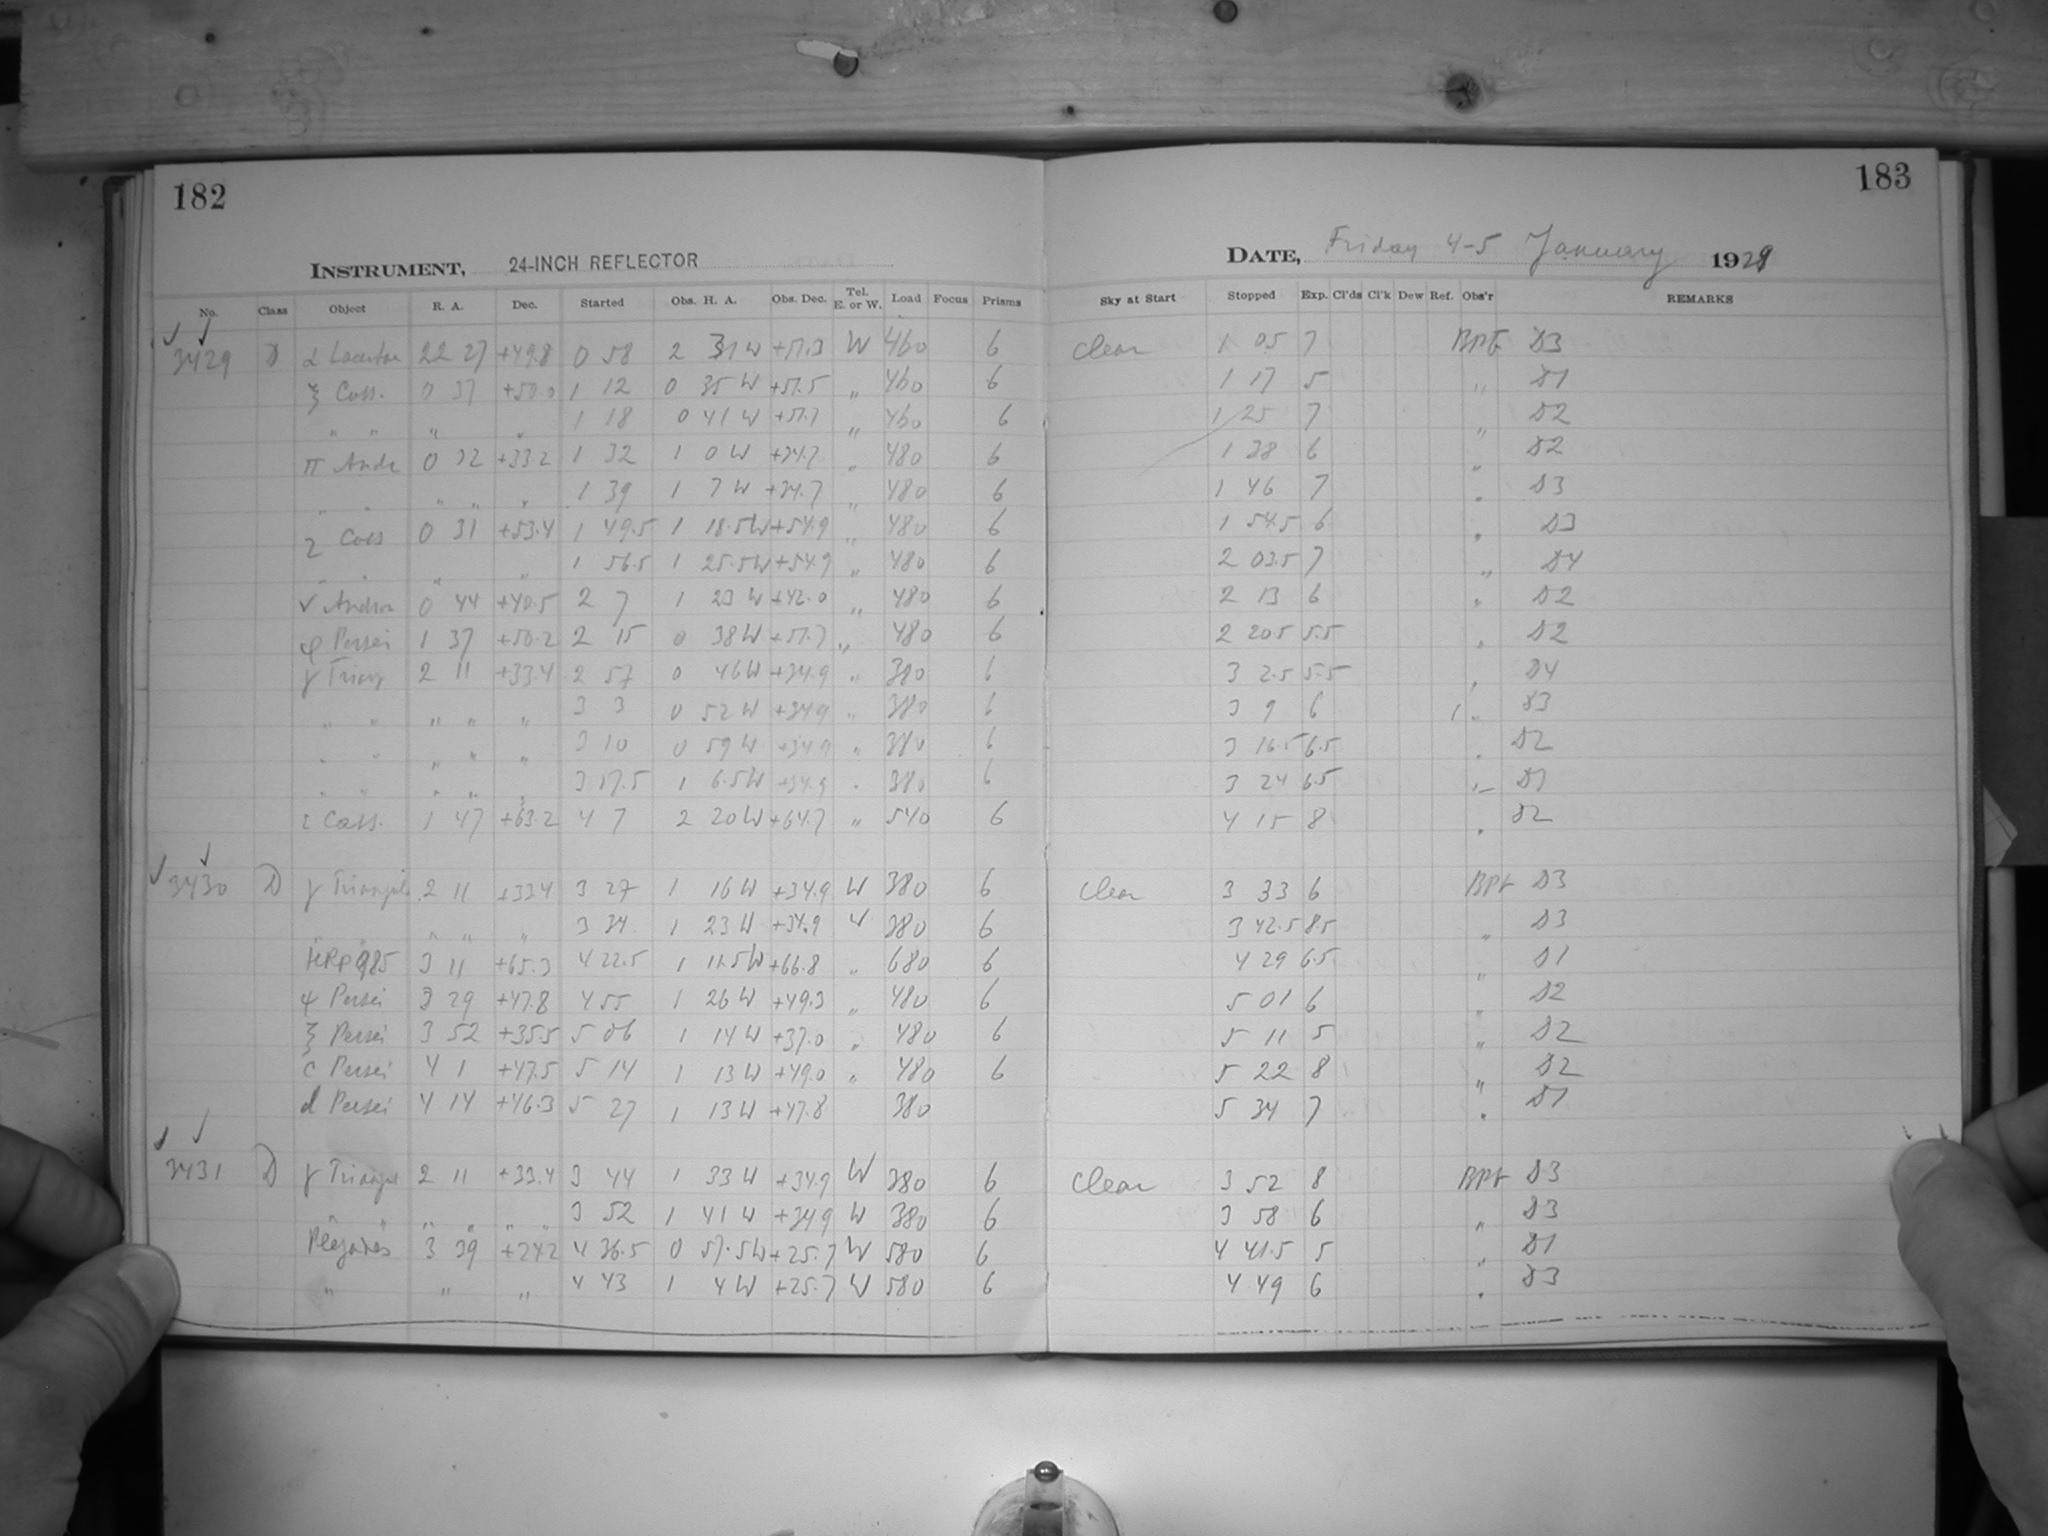 182
183
INSTRUMENT, 24-INCH REFLECTOR
DATE, Friday 4-5 January 1929
No. Class Object R. A. Dec. Started Obs. H. A. Obs. Dec. Tel. E. or W. Load Focus Prisms Sky at Start Stopped Exp. Cl'ds Cl'k Dew Ref. Obs'r REMARKS
3429 D α Lacertae 22 27 +49.8 0 58 2 31 W +51.3 W 460 6 Clear 1 05 7 BPG D3
ξ Cass. 0 37 +50.0 1 12 0 35 W +51.5 " 460 6 1 17 5 " D1
" " " " 1 18 0 41 W +51.7 " 460 6 1 25 7 " D2
π Andr 0 32 +33.2 1 32 1 0 W +34.7 " 480 6 1 38 6 " D2
" " " " " 1 39 1 7 W +34.7 " 480 6 1 46 7 " D3
ζ Cass 0 31 +53.4 1 49.5 1 18.5 W +54.9 " 480 6 1 54.5 6 " D3
" " " " 1 56.5 1 25.5 W +54.9 " 480 6 2 03.5 7 " D4
ν Androm 0 44 +40.5 2 7 1 23 W +42.0 " 480 6 2 13 6 " D2
φ Persei 1 37 +50.2 2 15 0 38 W +51.7 " 480 6 2 20.5 5.5 " D2
γ Triang 2 11 +33.4 2 57 0 46 W +34.9 " 380 6 3 2.5 5.5 " D4
" " " " " 3 3 0 52 W +34.9 " 380 6 3 9 6 " D3
" " " " " 3 10 0 59 W +34.9 " 380 6 3 16.5 6.5 " D2
" " " " " 3 17.5 1 6.5 W +34.9 " 380 6 3 24 6.5 " D1
ε Cass. 1 47 +63.2 4 7 2 20 W +64.7 " 540 6 4 15 8 " D2
3430 D γ Trianguli 2 11 +33.4 3 27 1 16 W +34.9 W 380 6 Clear 3 33 6 BPG D3
" " " " " 3 34 1 23 W +34.9 W 380 6 3 42.5 8.5 " D3
HRP 985 3 11 +65.3 4 22.5 1 11.5 W +66.8 " 680 6 4 29 6.5 " D1
ψ Persei 3 29 +47.8 4 55 1 26 W +49.3 " 480 6 5 01 6 " D2
ξ Persei 3 52 +35.5 5 06 1 14 W +37.0 " 480 6 5 11 5 " D2
c Persei 4 1 +47.5 5 14 1 13 W +49.0 " 480 6 5 22 8 " D2
d Persei 4 14 +46.3 5 27 1 13 W +47.8 380 5 34 7 " D1
3431 D γ Triangul 2 11 +33.4 3 44 1 33 W +34.9 W 380 6 Clear 3 52 8 BPG D3
" " " " " " 3 52 1 41 W +34.9 W 380 6 3 58 6 " D3
Plejades 3 39 +24.2 4 36.5 0 57.5 W +25.7 W 580 6 4 41.5 5 " D1
" " " 4 43 1 4 W +25.7 W 580 6 4 49 6 " D3